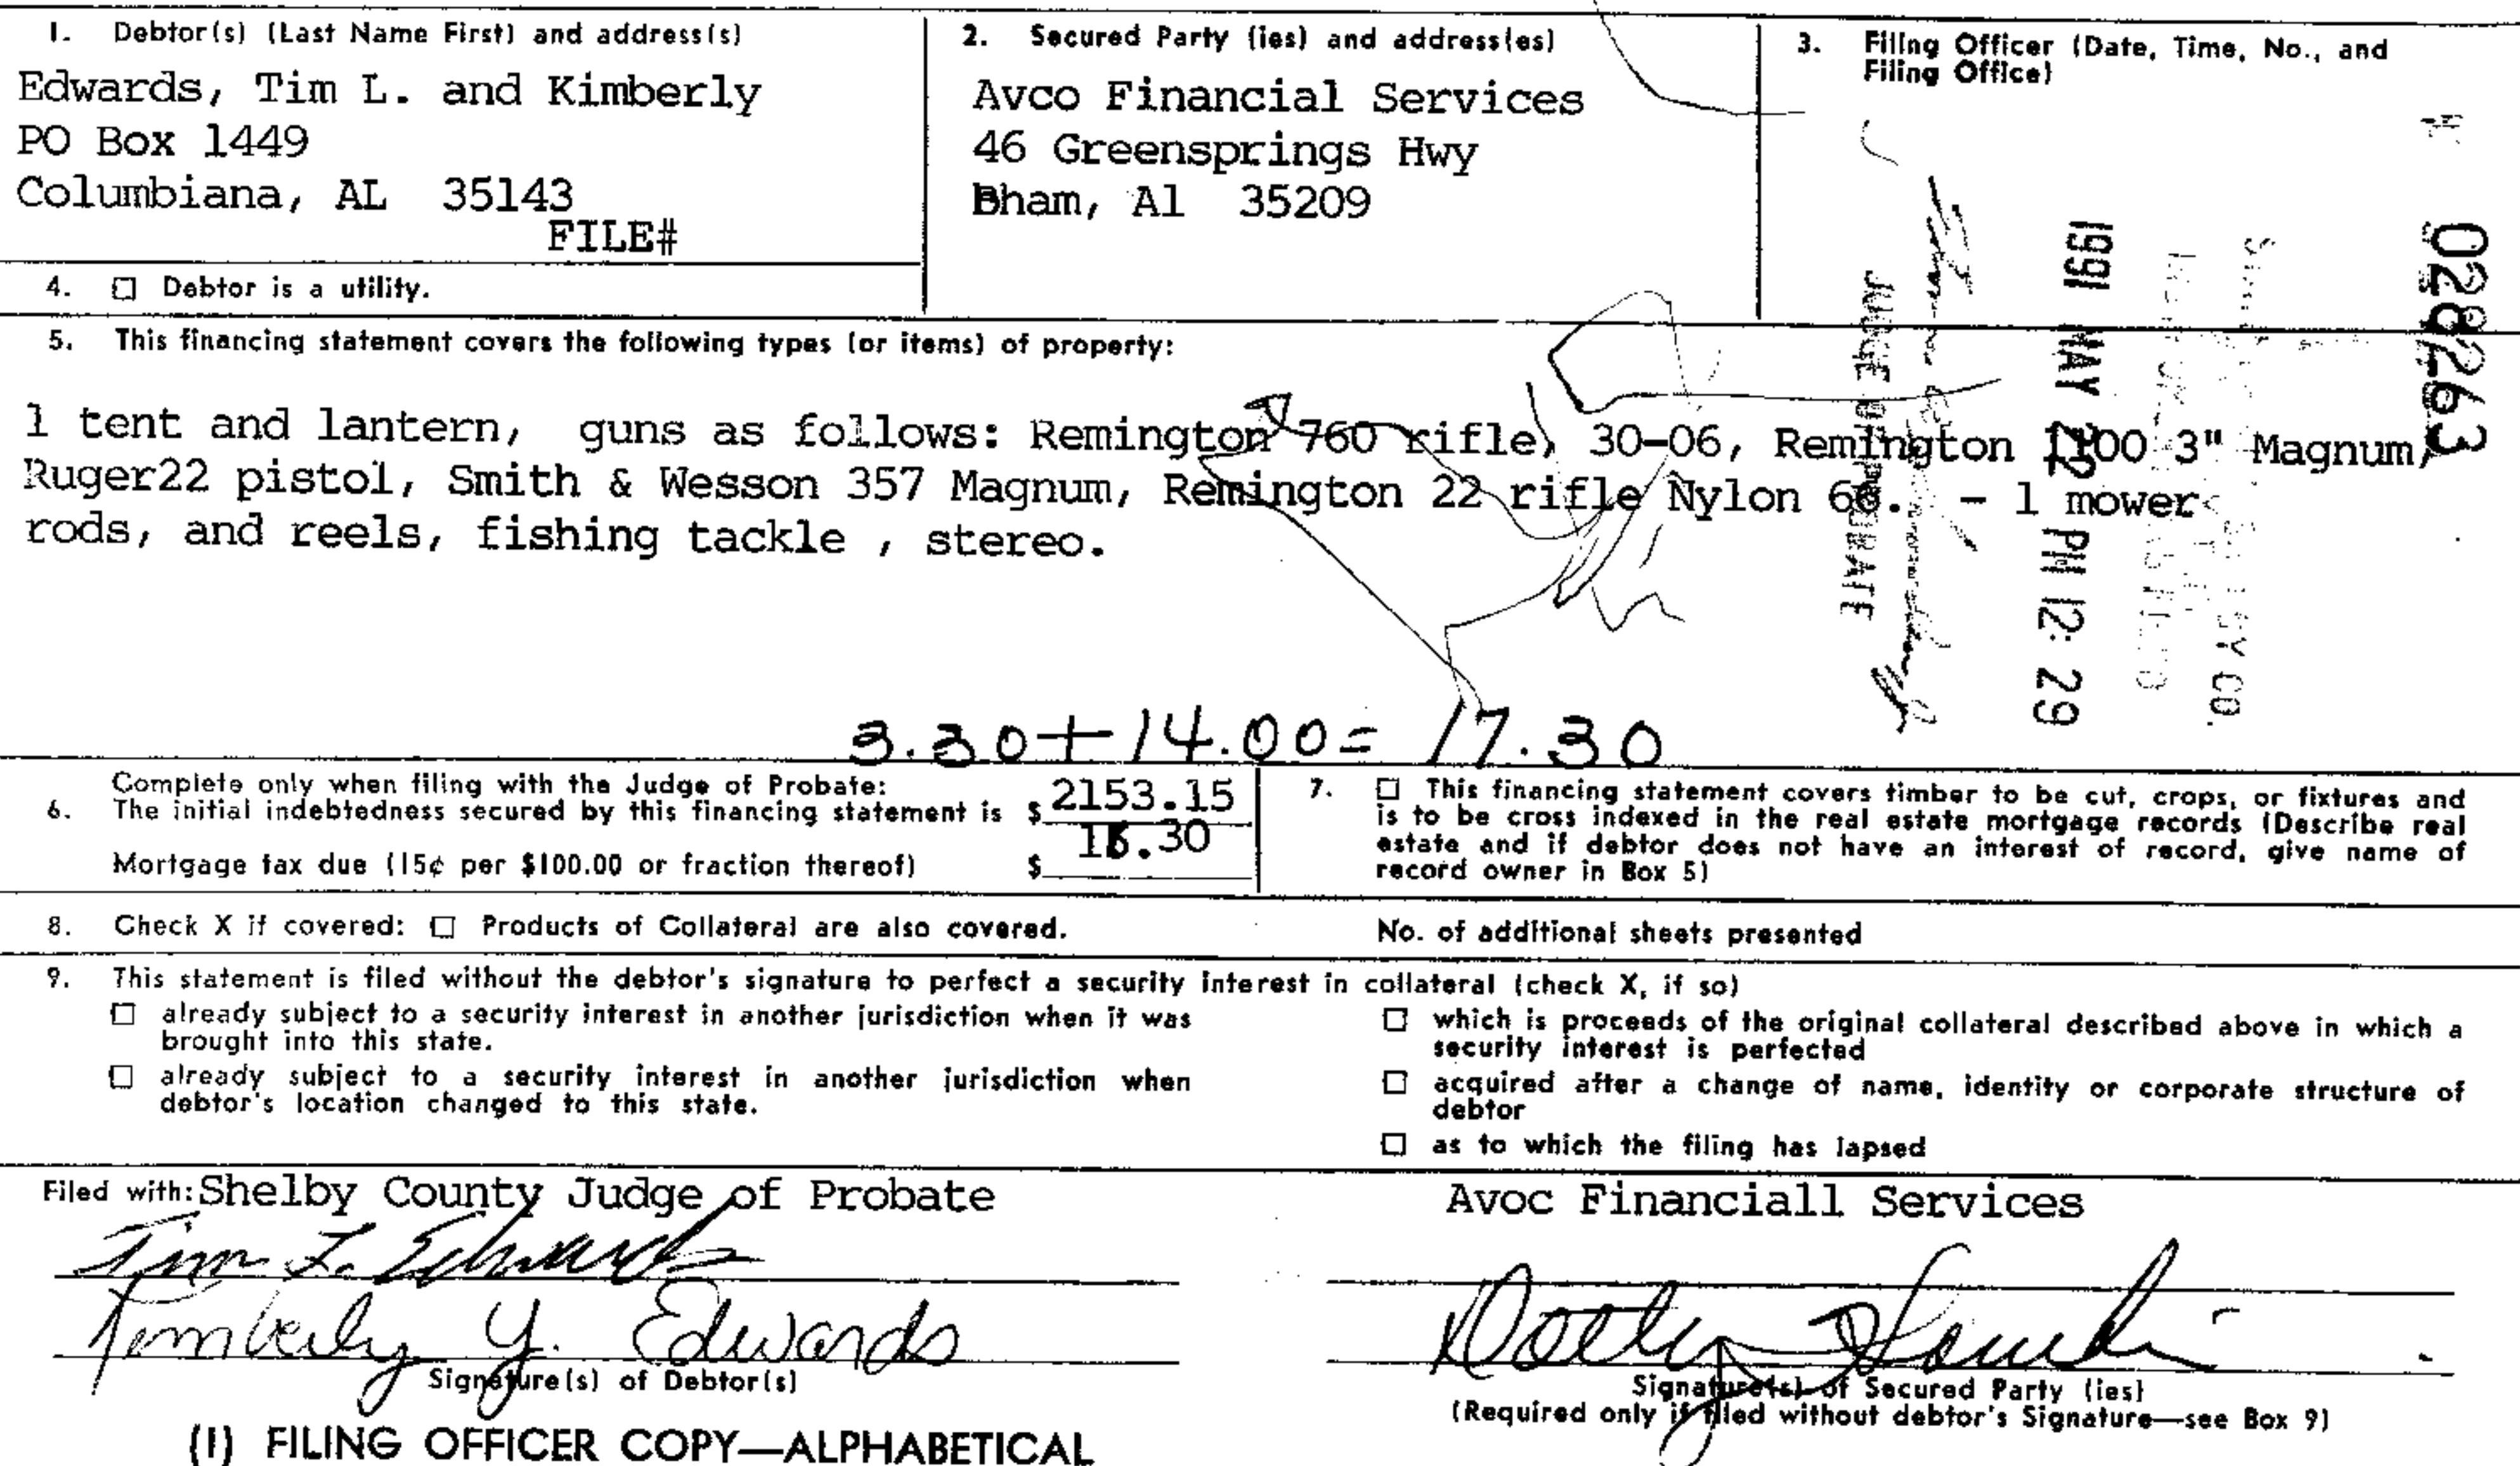 1. Debtor(s) (Last Name First) and address(s)
Edwards, Tim L. and Kimberly
PO Box 1449
Columbiana, AL 35143
FILE#
2. Secured Party (ies) and address(es)
Avco Financial Services
46 Greensprings Hwy
Bham, Al 35209
3. Filing Officer (Date, Time, No., and
Filing Office)
028263
1991 MAY 22 PM 12: 29
JUDGE OF PROBATE
4. ☐ Debtor is a utility.
5. This financing statement covers the following types (or items) of property:
1 tent and lantern, guns as follows: Remington 760 rifle, 30-06, Remington 1100 3" Magnum,
Ruger22 pistol, Smith & Wesson 357 Magnum, Remington 22 rifle Nylon 66. - 1 mower
rods, and reels, fishing tackle , stereo.
3.30+14.00= 17.30
Complete only when filing with the Judge of Probate:
6. The initial indebtedness secured by this financing statement is $ 2153.15
Mortgage tax due (15¢ per $100.00 or fraction thereof) $
7. ☐ This financing statement covers timber to be cut, crops, or fixtures and
is to be cross indexed in the real estate mortgage records (Describe real
estate and if debtor does not have an interest of record, give name of
record owner in Box 5)
8. Check X if covered: ☐ Products of Collateral are also covered.
No. of additional sheets presented
9. This statement is filed without the debtor's signature to perfect a security interest in collateral (check X, if so)
☐ already subject to a security interest in another jurisdiction when it was
brought into this state.
☐ already subject to a security interest in another jurisdiction when
debtor's location changed to this state.
☐ which is proceeds of the original collateral described above in which a
security interest is perfected
☐ acquired after a change of name, identity or corporate structure of
debtor
☐ as to which the filing has lapsed
Filed with: Shelby County Judge of Probate
Tim L. Edwards
Kimberly Y. Edwards
Signature(s) of Debtor(s)
(1) FILING OFFICER COPY—ALPHABETICAL
Avoc Financiall Services
Signature(s) of Secured Party (ies)
(Required only if filed without debtor's Signature—see Box 9)